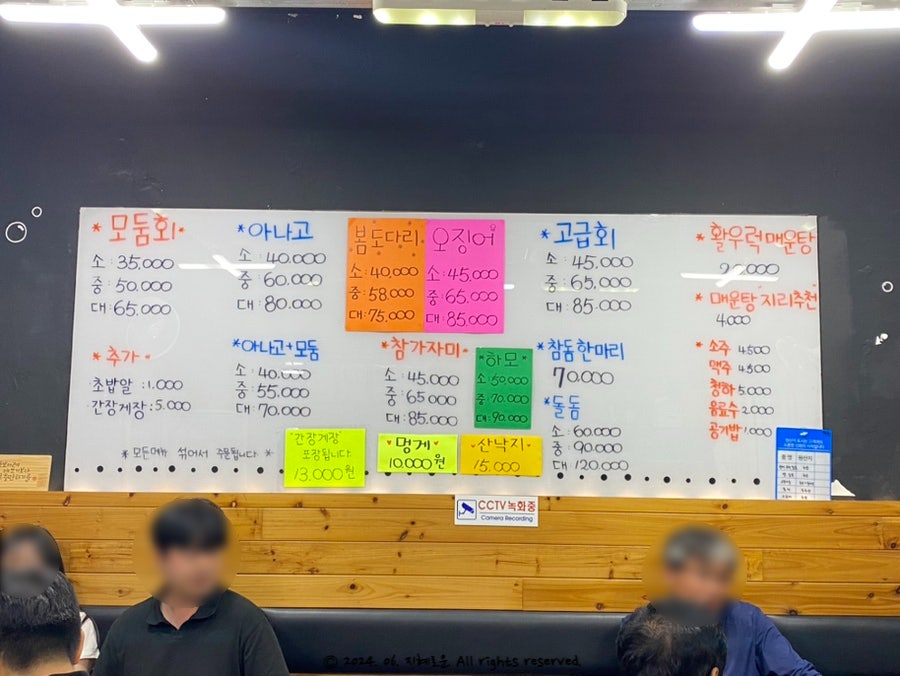 * 모둠회 *
소 : 35,000
중 : 50,000
대 : 65,000
* 아나고
소 : 40,000
중 : 60,000
대 : 80,000
봄도다리
소 : 40,000
중 : 58,000
대 : 75,000
오징어
소 : 45,000
중 : 65,000
대 : 85,000
* 고급회
소 : 45,000
중 : 65,000
대 : 85,000
* 활우럭매운탕
* 매운탕 지리추천
4,000
* 추가 *
초밥알 : 1,000
간장게장 : 5,000
* 아나고+모둠
소 : 40,000
중 : 55,000
대 : 70,000
* 참가자미 *
소 : 45,000
중 : 65,000
대 : 85,000
* 하모 *
소 : 50,000
중 : 70,000
대 : 90,000
* 참돔한마리
70,000
* 돌돔
소 : 60,000
중 : 90,000
대 120,000
* 소주 4500
맥주 4500
청하 5,000
음료수 2,000
공기밥 1,000
* 모든메뉴 섞어서 주문됩니다 *
"간장게장"
포장됩니다
13,000원
멍게
10,000원
산낙지
15,000
CCTV녹화중
Camera Recording
© 2024. 06. 지혜로운 All rights reserved.